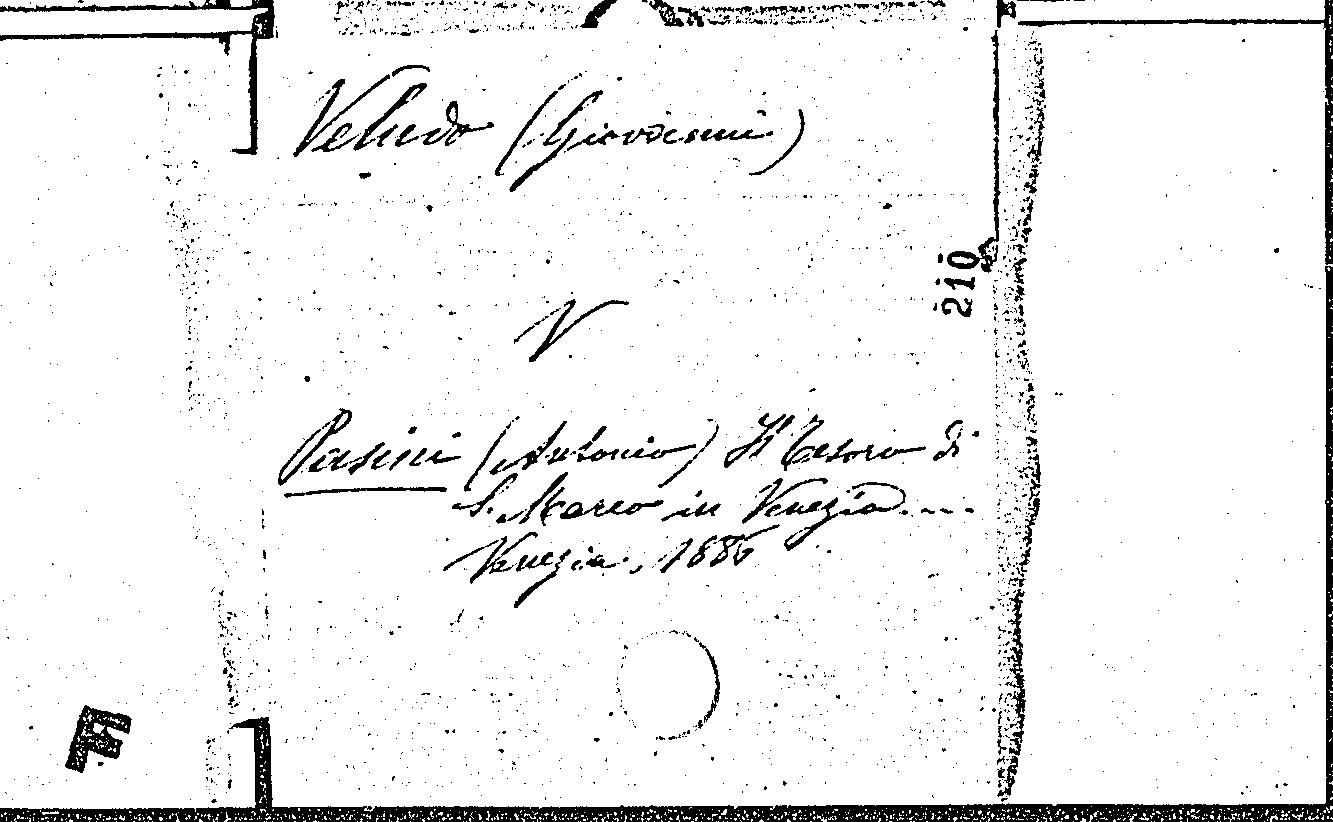 Veludo (Giovanni)
210
V
Pasini (Antonio) Il Tesoro di
S. Marco in Venezia....
Venezia, 1886
F